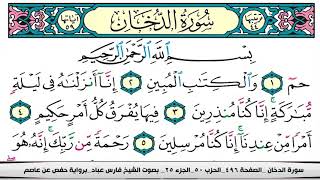 ترتيبها ٤٤
سُورَةُ الدُّخَانِ
آياتها ٥٩
بِسْمِ ٱللَّهِ ٱلرَّحْمَٰنِ ٱلرَّحِيمِ
حمٓ ١ وَٱلْكِتَٰبِ ٱلْمُبِينِ ٢ إِنَّآ أَنزَلْنَٰهُ فِى لَيْلَةٍ
مُّبَٰرَكَةٍ ۚ إِنَّا كُنَّا مُنذِرِينَ ٣ فِيهَا يُفْرَقُ كُلُّ أَمْرٍ حَكِيمٍ ٤
أَمْرًا مِّنْ عِندِنَآ ۚ إِنَّا كُنَّا مُرْسِلِينَ ٥ رَحْمَةً مِّن رَّبِّكَ ۚ إِنَّهُۥ هُوَ
سورة الدخان _ الصفحة ٤٩٦_ الحزب ٥٠_ الجزء ٢٥ _ بصوت الشيخ فارس عباد_ برواية حفص عن عاصم